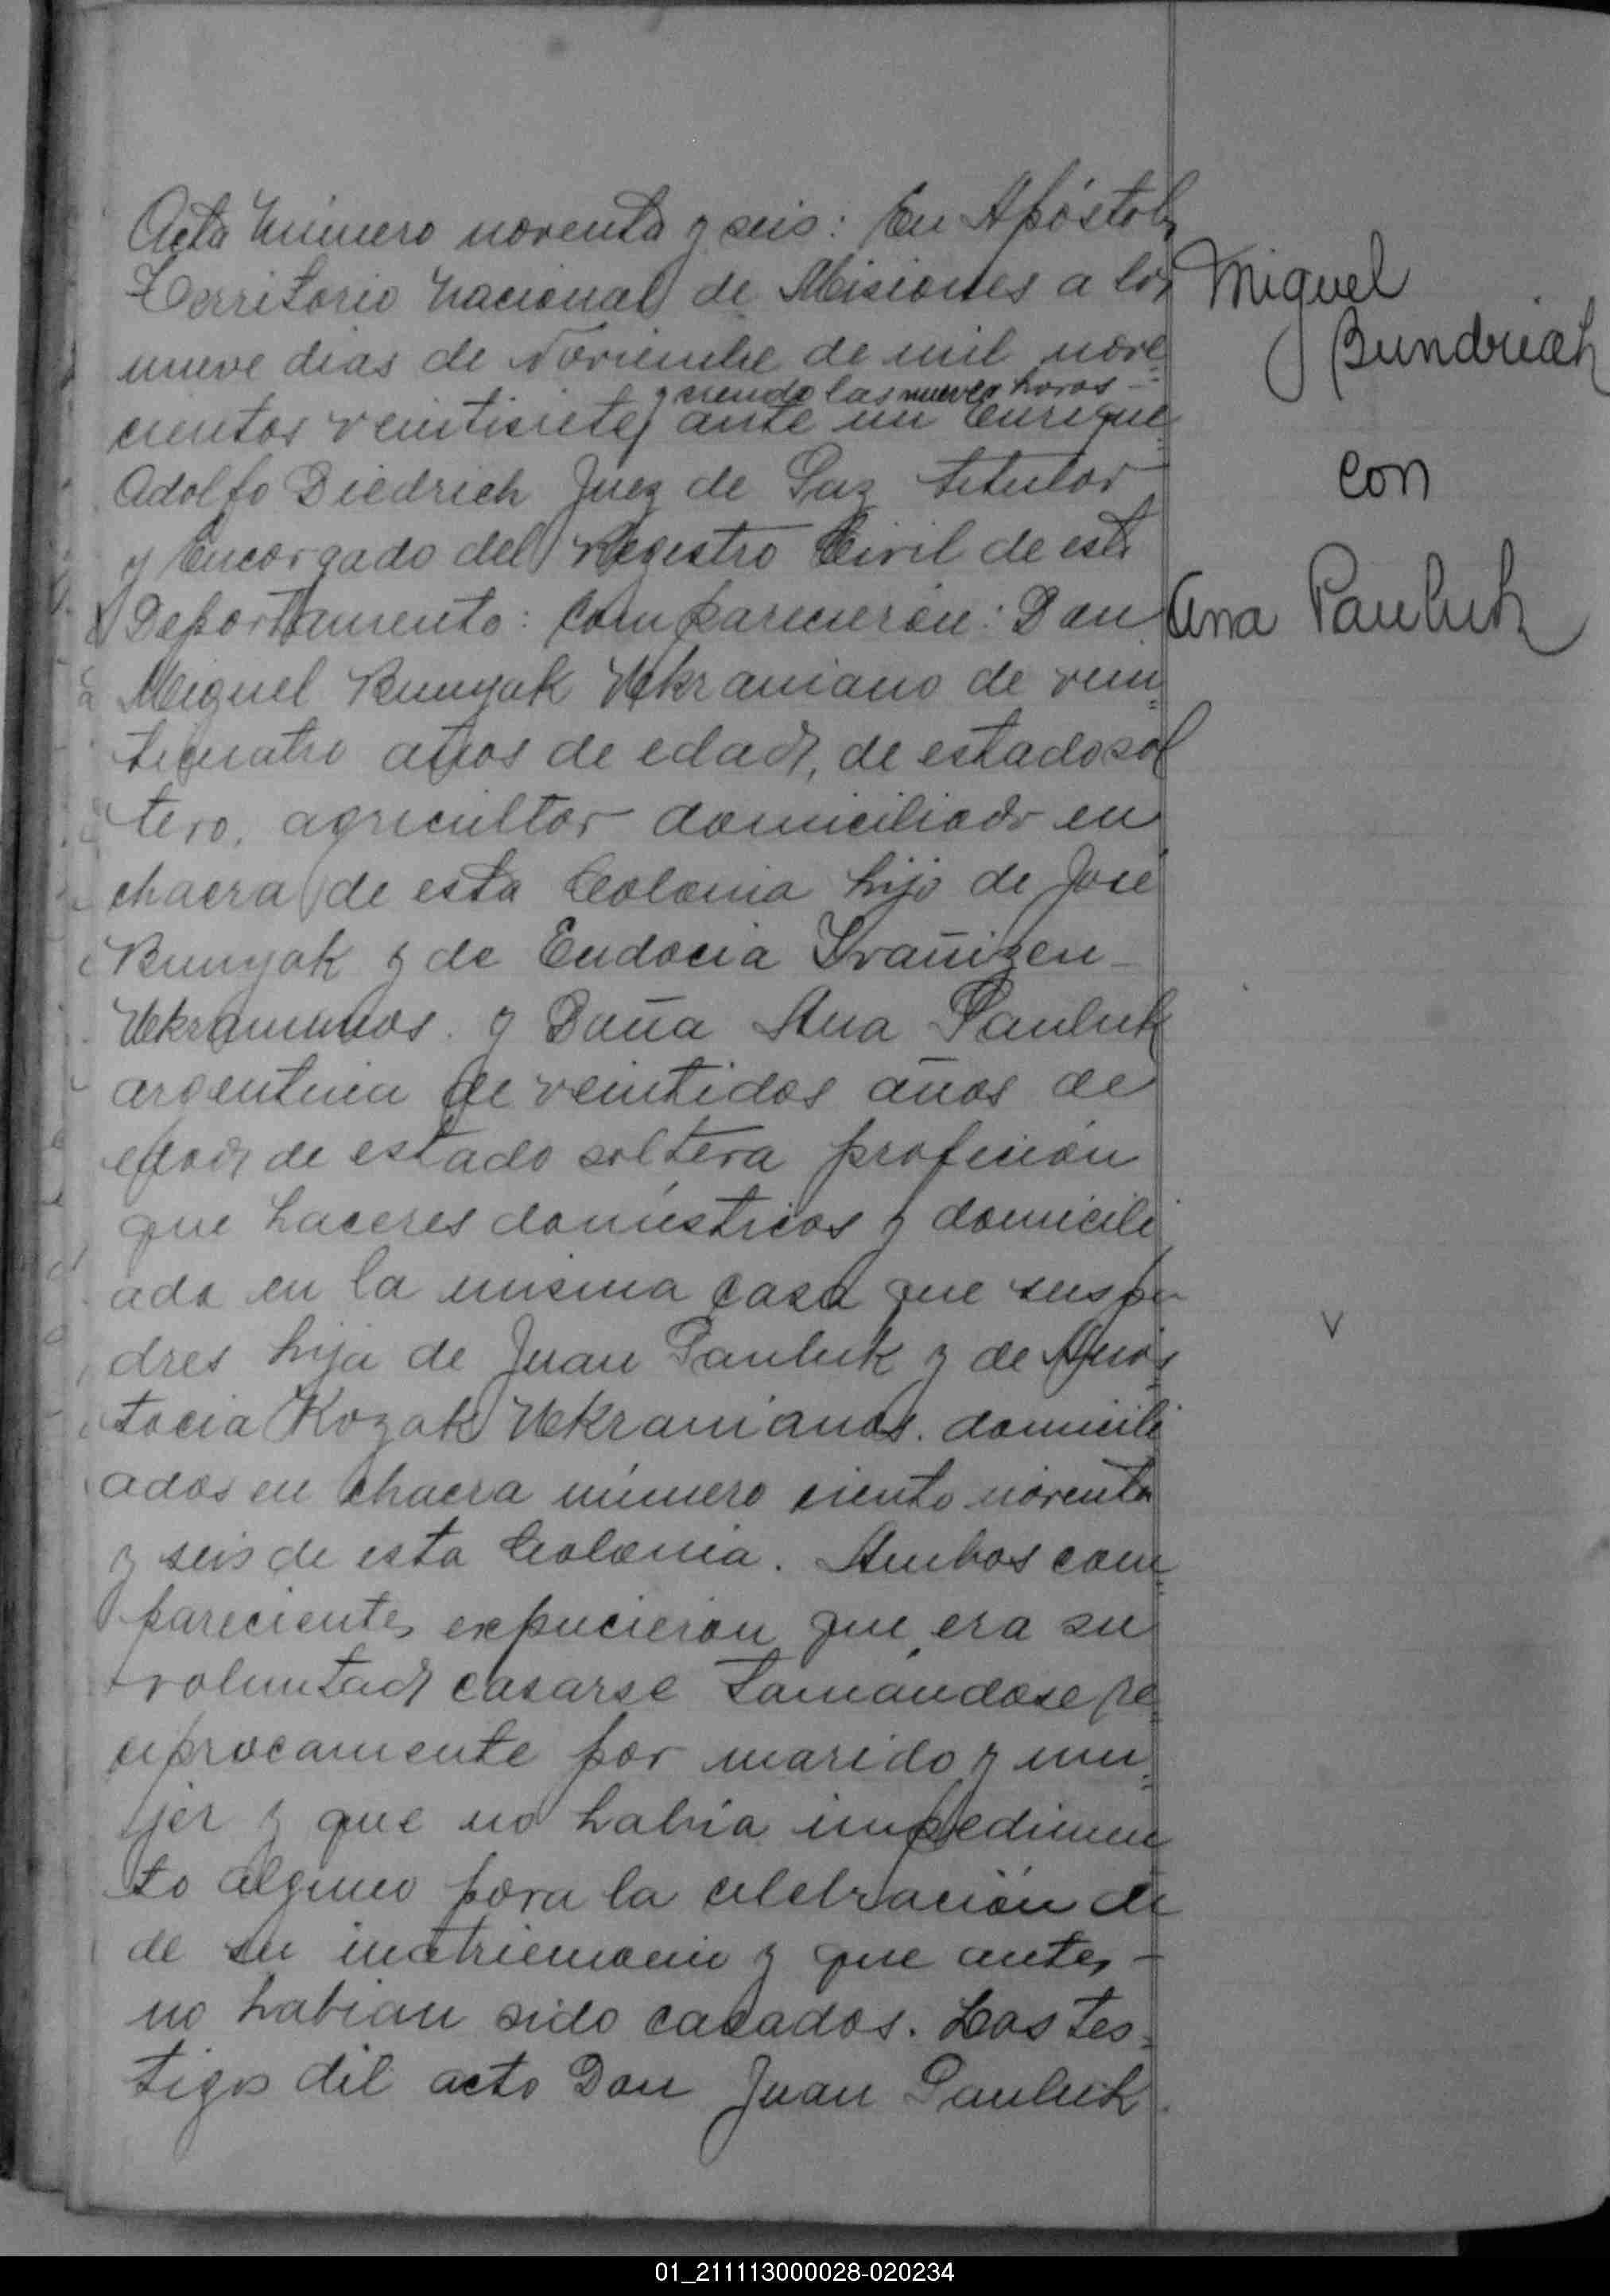 Acta Número noventa y seis: En Apóstoles
Territorio Nacional de Misiones a los
nueve dias de Noviembre de mil nove
y siendo las nueve horas
cientos veintisiete, ante mi Enrique
Adolfo Diedrich Juez de Paz titular
y Encargado del Registro Civil de este
Departamento: comparicieron: Don
Miguel Bunyak Ukraniano de vein
ticuatro años de edad, de estado sol
tero, agricultor domiciliado en
chacra de esta Colonia hijo de José
Bunyak y de Eudocia
Ukranianos. y Doña Ana Pauluk
argentina de veintidos años de
edad de estado soltera profición
que haceres doméstricos y domicili
ada en la misma casa que sus pa
dres hija de Juan Pauluk y de Anas
tacia Kozak Ukranianos. domicili
ados en chacra número ciento noventa
y seis de esta Colonia. Ambos com
parecientes expucieron que era su
voluntad casarse tomándose re
ciprocamente por marido y mu
jer y que no había impedimen
to alguno para la celebración de
de su matriemonio y que antes
no habian sido casados. Los tes
tigos dil acto Don Juan Pauluk
Miguel
Bundriak
con
Ana Pauluk
01_211113000028-020234